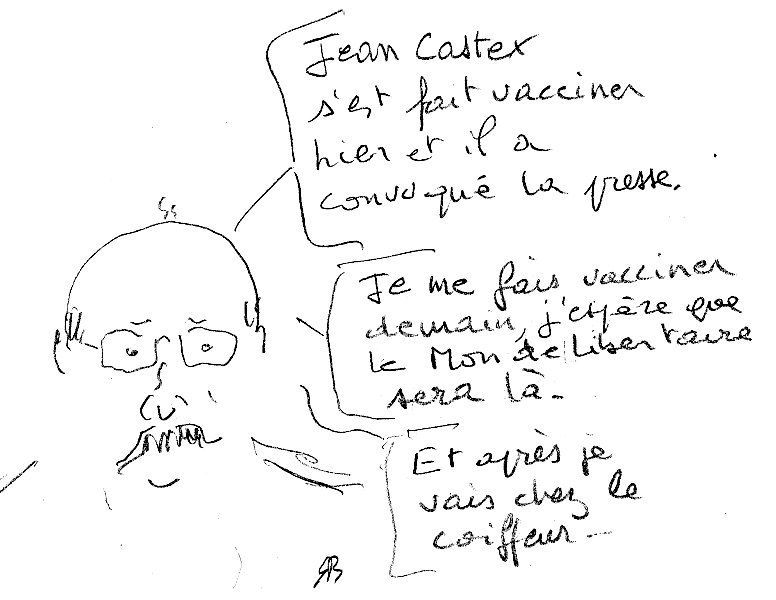 Jean Castex
s'est fait vacciner
hier et il a
convoqué la presse.
Je me fais vacciner
demain, j'espère que
le Monde libertaire
sera là -
Et après je
vais chez le
coiffeur -